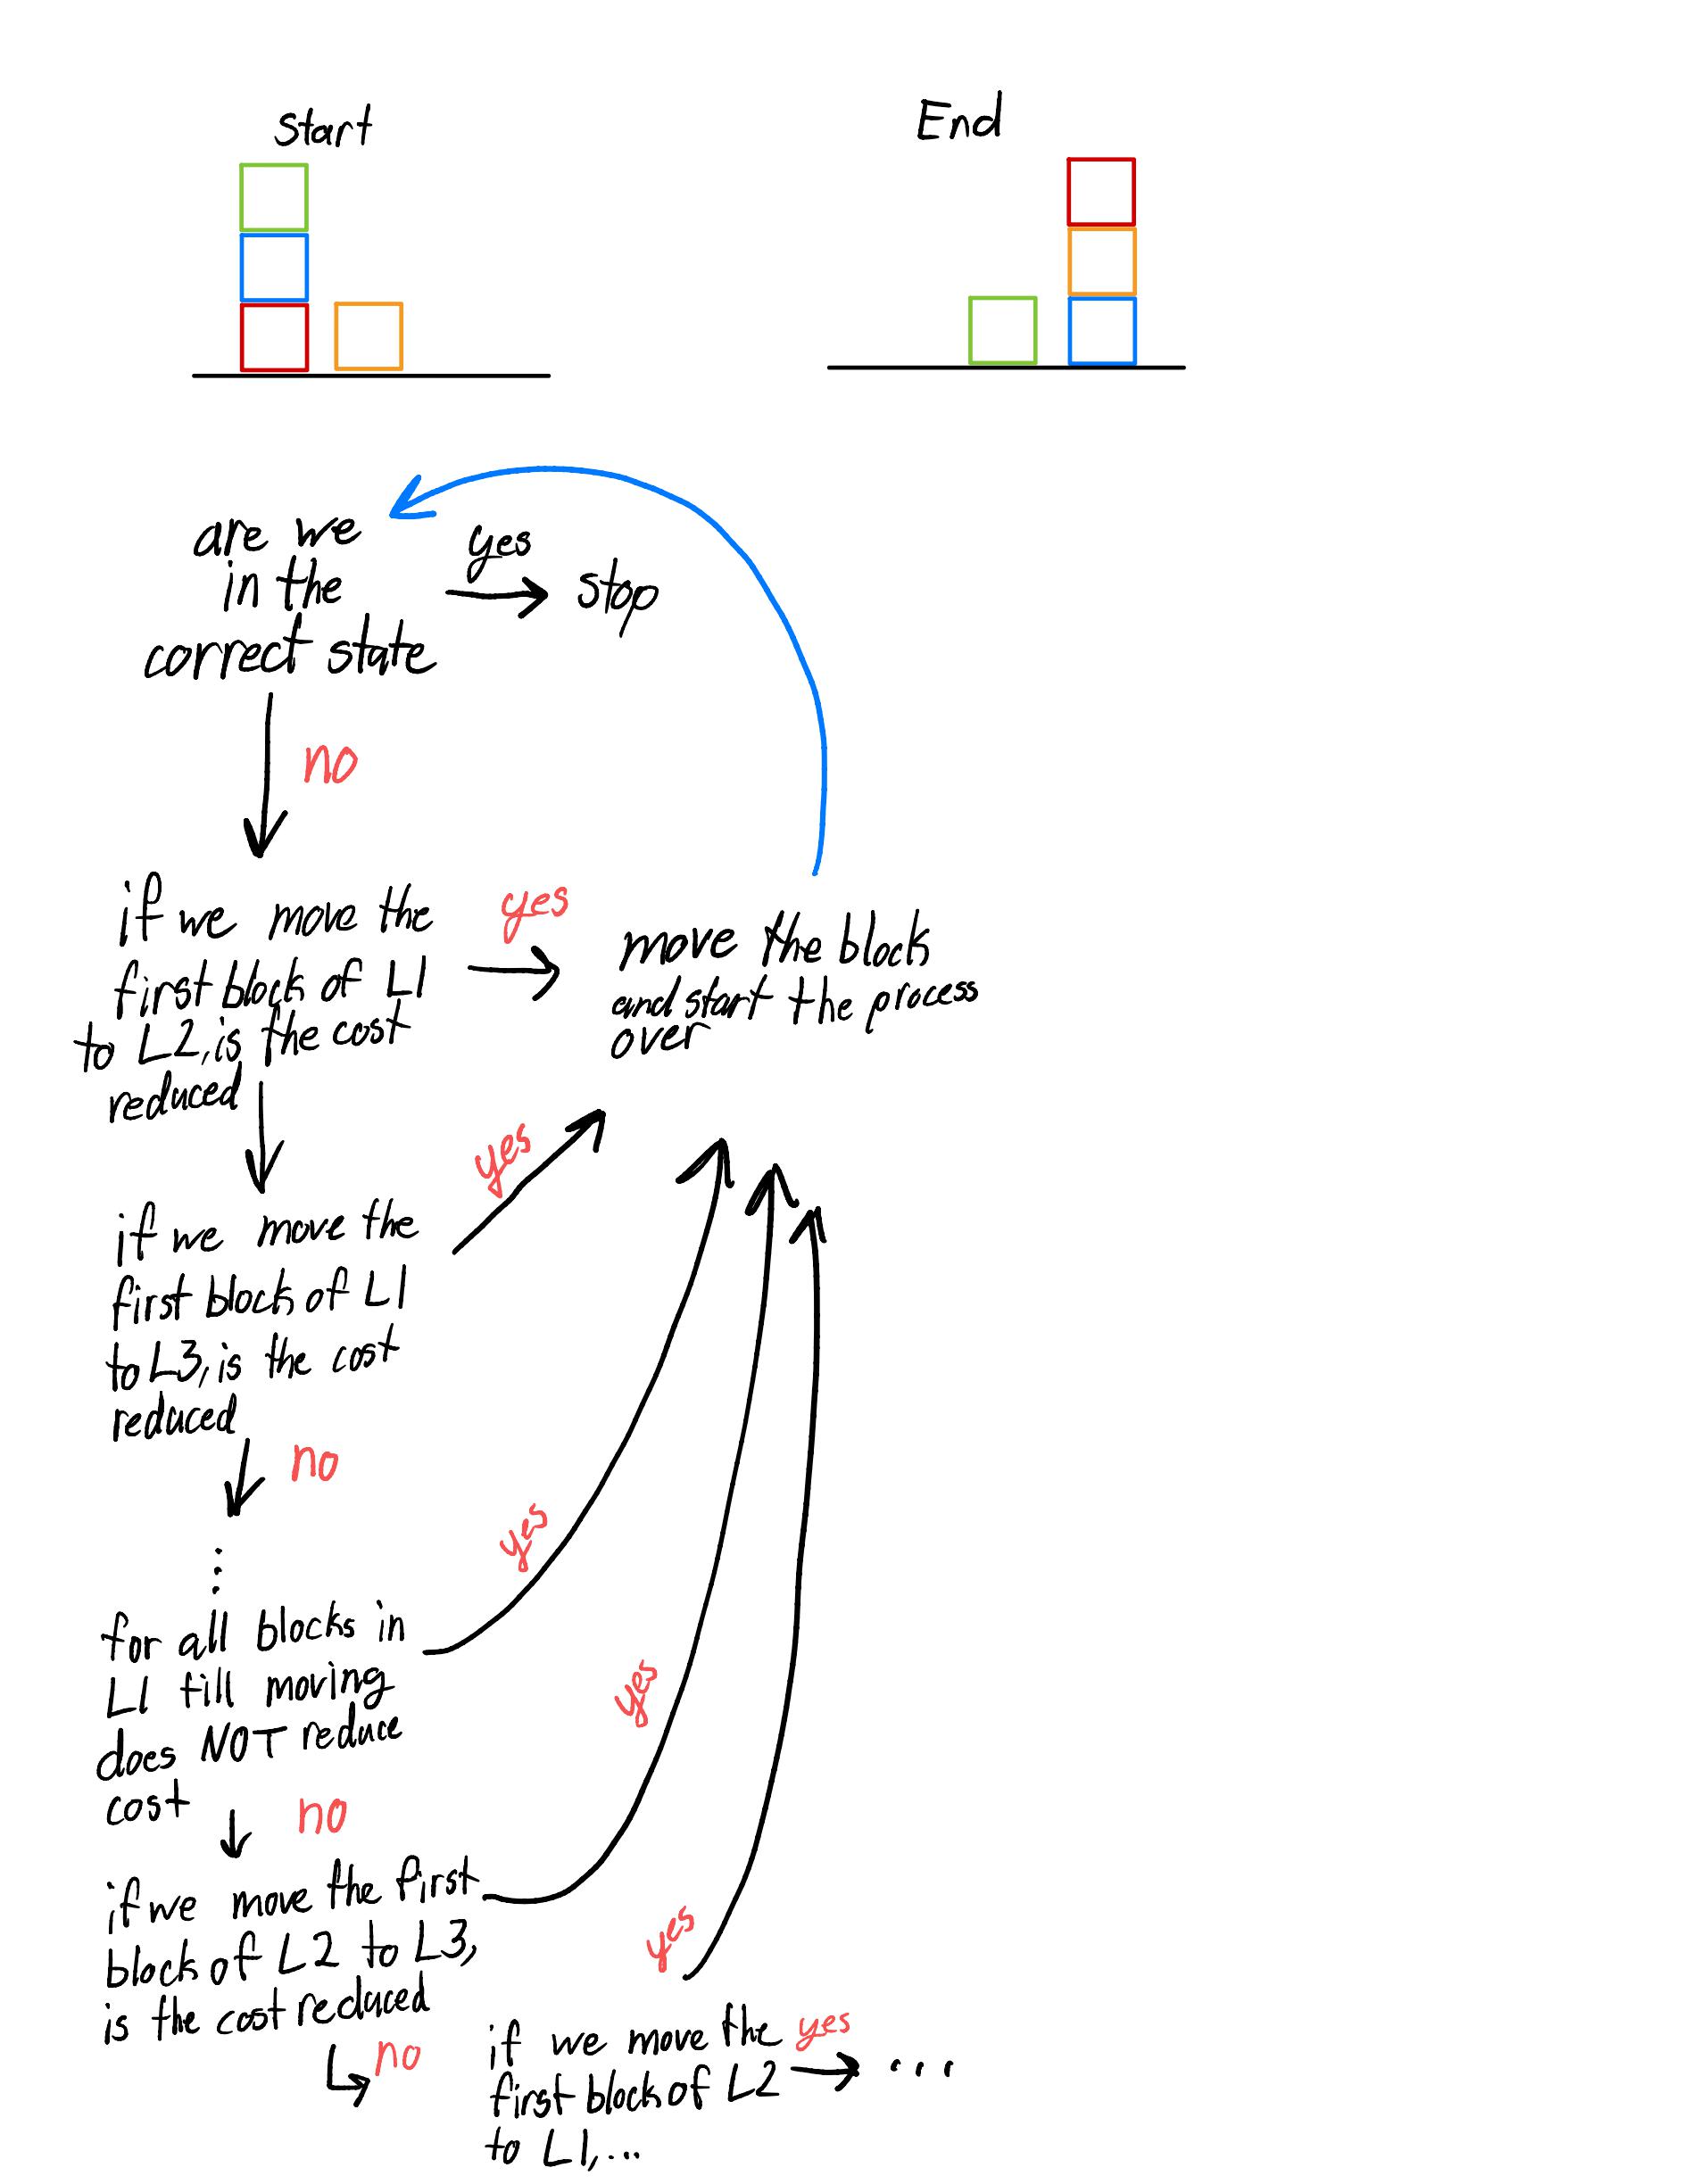 Start
End
are we
in the
correct state
yes
stop
no
if we move the
first block of L1
to L2, is the cost
reduced
yes
move the block
and start the process
over
yes
if we move the
first block of L1
to L3, is the cost
reduced
no
...
for all blocks in
L1 till moving
does NOT reduce
cost
yes
no
if we move the first
block of L2 to L3,
is the cost reduced
yes
no
yes
if we move the
first block of L2
to L1, ...
yes
...